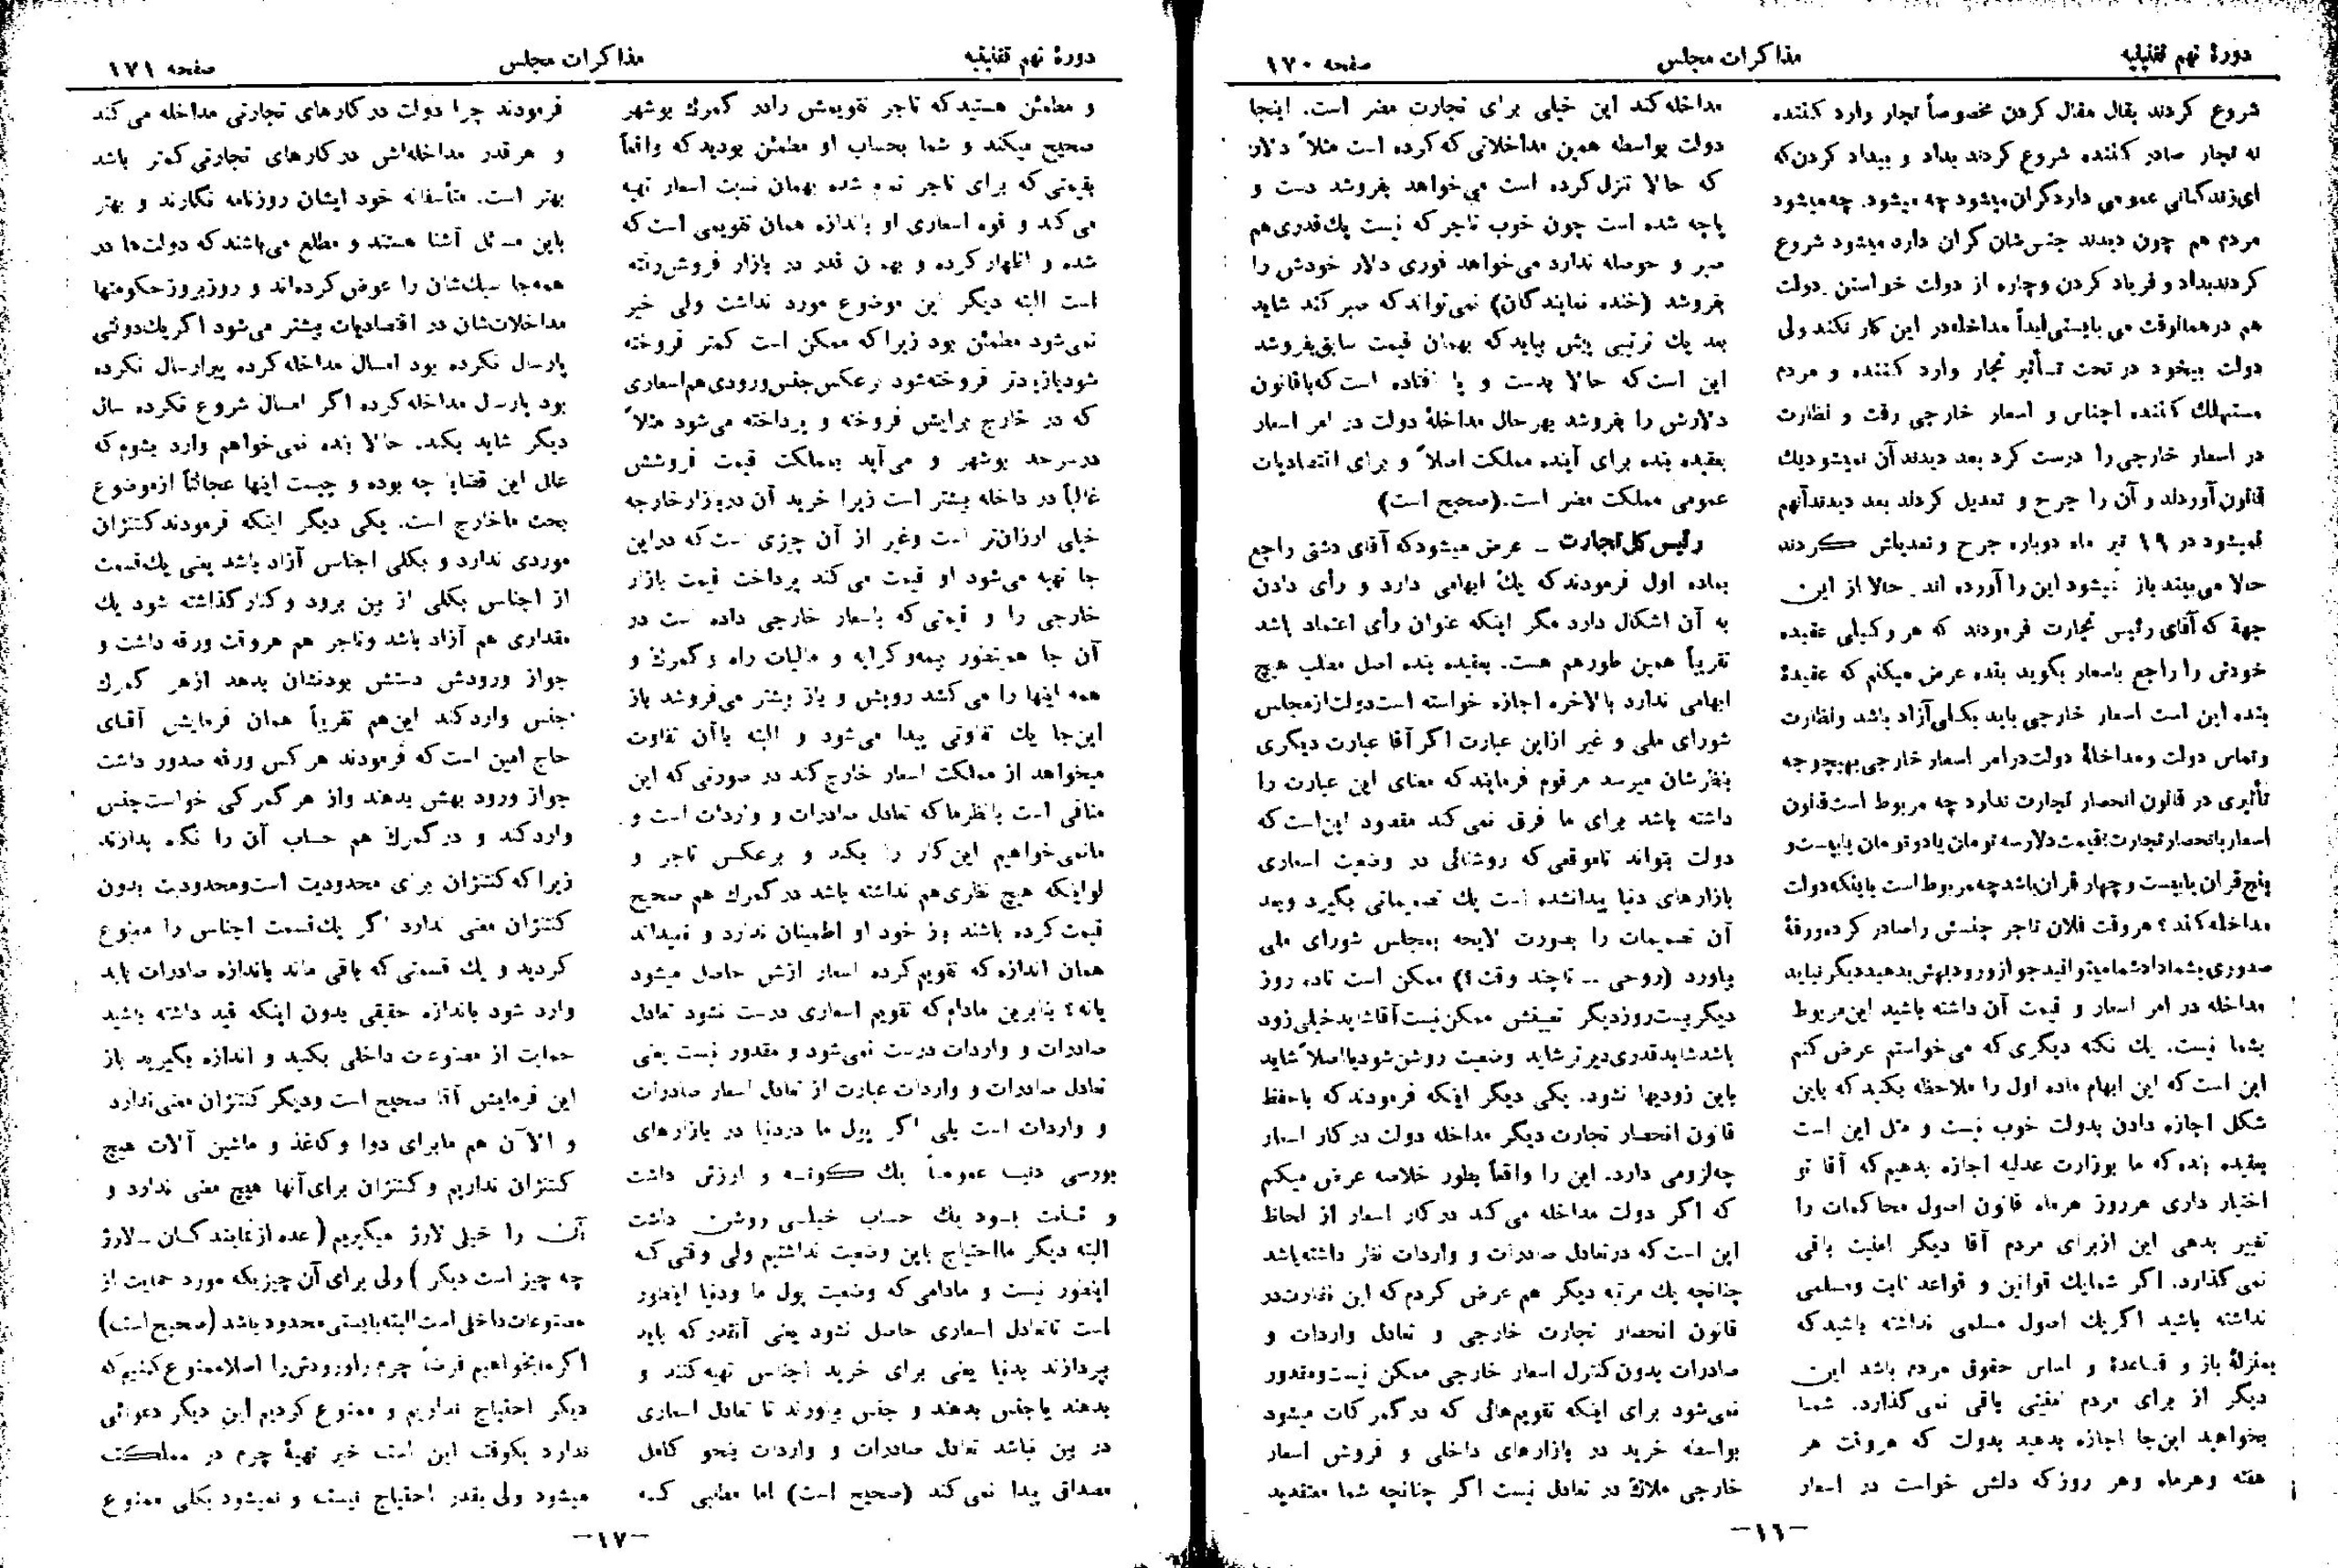 دورهٔ نهم تقنینیه
مذاکرات مجلس
صفحه ۱۷۰
شروع کردند بقال مقال کردن مخصوصاً تجار وارد کننده
نه تجار صادر کننده شروع کردند بداد و بیداد کردن که
ای زندگانی عمومی دارد گران میشود چه میشود. چه میشود
مردم هم چون دیدند جنس‌شان گران دارد میشود شروع
کردند بداد و فریاد کردن و چاره از دولت خواستن. دولت
هم در همانوقت می بایستی ابداً مداخله در این کار نکند ولی
دولت بیخود در تحت تأثیر تجار وارد کننده و مردم
مستهلك کننده اجناس و اسعار خارجی رفت و نظارت
در اسعار خارجی را درست کرد بعد دیدند آن نمیشود یك
قانون آوردند و آن را جرح و تعدیل کردند بعد دیدند آنهم
نمیشود در ۱۹ تیر ماه دوباره جرح و تعدیلش کردند
حالا می بینند باز نمیشود این را آورده اند. حالا از این
جهة که آقای رئیس تجارت فرمودند که هر وکیلی عقیده
خودش را راجع باسعار بگوید بنده عرض میکنم که عقیدهٔ
بنده این است اسعار خارجی باید بکلی آزاد باشد و نظارت
و تماس دولت و مداخلهٔ دولت در امر اسعار خارجی بهیچوجه
تأثیری در قانون انحصار تجارت ندارد چه مربوط است قانون
اسعار با انحصار تجارت؛ قیمت دلار سه تومان یا دو تومان یا بیست و
پنج قران یا بیست و چهار قران باشد چه مربوط است باینکه دولت
مداخله کند؟ هر وقت فلان تاجر جنسش را صادر کرده ورقهٔ
صدوری بشما داد شما میتوانید جواز ورود بهش بدهید دیگر نباید
مداخله در امر اسعار و قیمت آن داشته باشید این مربوط
بشما نیست. یك نکته دیگری که می خواستم عرض کنم
این است که این ابهام ماده اول را ملاحظه بکنید که باین
شکل اجازه دادن بدولت خوب نیست و مثل این است
بعقیده بنده که ما بوزارت عدلیه اجازه بدهیم که آقا تو
اختیار داری هر روز هر ماه قانون اصول محاکمات را
تغییر بدهی این از برای مردم آقا دیگر امنیت باقی
نمی گذارد. اگر شما یك قوانین و قواعد ثابت و مسلمی
نداشته باشید اگر یك اصول مسلمی نداشته باشید که
بمنزلهٔ باز و قاعدهٔ و اساس حقوق مردم باشد این
دیگر از برای مردم تفننی باقی نمی گذارد. شما
بخواهید این‌جا اجازه بدهید بدولت که هر وقت هر
هفته و هر ماه و هر روز که دلش خواست در اسعار
مداخله کند این خیلی برای تجارت مضر است. اینجا
دولت بواسطه همین مداخلاتی که کرده است مثلاً دلار
که حالا تنزل کرده است می خواهد بفروشد دست و
پاچه شده است چون خوب تاجر که نیست یك قدری هم
صبر و حوصله ندارد می خواهد فوری دلار خودش را
بفروشد (خنده نمایندگان) نمی تواند که صبر کند شاید
بعد یك ترتیبی پیش بیاید که بهمان قیمت سابق بفروشد
این است که حالا بدست و پا افتاده است که با قانون
دلارش را بفروشد بهر حال مداخلهٔ دولت در امر اسعار
بعقیده بنده برای آینده مملکت اصلاً و برای اقتصادیات
عمومی مملکت مضر است. (صحیح است)
رئیس کل تجارت ــ عرض میشود که آقای دشتی راجع
بماده اول فرمودند که یك ابهامی دارد و رأی دادن
به آن اشکال دارد مگر اینکه عنوان رأی اعتماد باشد
تقریباً همین طور هم هست. بعقیده بنده اصل مطلب هیچ
ابهامی ندارد بالاخره اجازه خواسته است دولت از مجلس
شورای ملی و غیر از این عبارت اگر آقا عبارت دیگری
بنظرشان میرسد مرقوم فرمایند که معنای این عبارت را
داشته باشد برای ما فرق نمی کند مقصود این است که
دولت بتواند تا موقعی که روشنائی در وضعیت اسعاری
بازارهای دنیا پیدا نشده است یك تصمیماتی بگیرد و بعد
آن تصمیمات را بصورت لایحه بمجلس شورای ملی
بیاورد (روحی ــ تا چند وقت؟) ممکن است تا ده روز
دیگر بیست روز دیگر تعیینش ممکن نیست آقا شاید خیلی زود
باشد شاید قدری دیرتر شاید وضعیت روشن شود یا اصلاً شاید
باین زودیها نشود. یکی دیگر اینکه فرمودند که با حفظ
قانون انحصار تجارت دیگر مداخله دولت در کار اسعار
چه لزومی دارد. این را واقعاً بطور خلاصه عرض میکنم
که اگر دولت مداخله می کند در کار اسعار از لحاظ
این است که در تعادل صادرات و واردات نظر داشته باشد
چنانچه یك مرتبه دیگر هم عرض کردم که این نظارت در
قانون انحصار تجارت خارجی و تعادل واردات و
صادرات بدون کنترل اسعار خارجی ممکن نیست و مقدور
نمی شود برای اینکه تقویم‌هائی که در گمرکات میشود
بواسطه خرید در بازارهای داخلی و فروش اسعار
خارجی ملاك در تعادل نیست اگر چنانچه شما معتقدید
ــ۱۶ــ
دورهٔ نهم تقنینیه
مذاکرات مجلس
صفحه ۱۷۱
و مطمئن هستید که تاجر تقویمش را در گمرك بوشهر
صحیح میکند و شما بحساب او مطمئن بودید که واقعاً
بقیمتی که برای تاجر تمام شده بهمان نسبت اسعار تهیه
می کند و قوه اسعاری او باندازه همان تقویمی است که
شده و اظهار کرده و بهمان قدر در بازار فروش رفته
است البته دیگر این موضوع مورد نداشت ولی خیر
نمی شود مطمئن بود زیرا که ممکن است کمتر فروخته
شود یا زیادتر فروخته شود برعکس جنس ورودی هم اسعاری
که در خارج برایش فروخته و پرداخته می شود مثلاً
در سرحد بوشهر و می آید بمملکت قیمت فروشش
غالباً در داخله بیشتر است زیرا خرید آن در بازار خارجه
خیلی ارزان‌تر است و غیر از آن چیزی است که در این
جا تهیه می شود او قیمت می کند پرداخت قیمت بازار
خارجی را و قیمتی که باسعار خارجی داده است در
آن جا همینطور بیمه و کرایه و مالیات راه و گمرك و
همه اینها را می کشد رویش و باز بیشتر می فروشد باز
این‌جا یك تفاوتی پیدا می شود و البته با آن تفاوت
میخواهد از مملکت اسعار خارج کند در صورتی که این
منافی است با نظر ما که تعادل صادرات و واردات است و
ما نمی خواهیم این کار را بکند و برعکس تاجر و
لو اینکه هیچ نظری هم نداشته باشد در گمرك هم صحیح
قیمت کرده باشند باز خود او اطمینان ندارد و نمیداند
همان اندازه که تقویم کرده اسعار ازش حاصل میشود
یا نه؟ بنابرین مادام که تقویم اسعاری درست نشود تعادل
صادرات و واردات درست نمی شود و مقدور نیست یعنی
تعادل صادرات و واردات عبارت از تعادل اسعار صادرات
و واردات است بلی اگر پول ما در دنیا در بازارهای
بورسی دنیا عموماً یك گونه و ارزش داشت
و ثابت بود یك حساب خیلی روشن داشت
البته دیگر ما احتیاج باین وضعیت نداشتیم ولی وقتی که
اینطور نیست و مادامی که وضعیت پول ما و دنیا اینطور
است تا تعادل اسعاری حاصل نشود یعنی آنقدر که باید
پردازند بدنیا یعنی برای خرید اجناس تهیه کنند و
بدهند یا جنس بدهند و جنس بیاورند تا تعادل اسعاری
در بین نباشد تعادل صادرات و واردات بنحو کامل
مصداق پیدا نمی کند (صحیح است) اما مطلبی که
فرمودند چرا دولت در کارهای تجارتی مداخله می کند
و هر قدر مداخله‌اش در کارهای تجارتی کمتر باشد
بهتر است. متأسفانه خود ایشان روزنامه نگارند و بهتر
باین مسائل آشنا هستند و مطلع می باشند که دولت‌ها در
همه‌جا سبك‌شان را عوض کرده‌اند و روز بروز حکومتها
مداخلات‌شان در اقتصادیات بیشتر می شود اگر یك دولتی
پارسال نکرده بود امسال مداخله کرده پیرارسال نکرده
بود پارسال مداخله کرده اگر امسال شروع نکرده سال
دیگر شاید بکند. حالا بنده نمی خواهم وارد بشوم که
علل این قضایا چه بوده و چیست اینها عجالتاً از موضوع
بحث ما خارج است. یکی دیگر اینکه فرمودند کنتران
موردی ندارد و بکلی اجناس آزاد باشد یعنی یك قسمت
از اجناس بکلی از بین برود و کنار گذاشته شود یك
مقداری هم آزاد باشد و تاجر هم هر وقت ورقه داشت و
جواز ورودش دستش بود نشان بدهد از هر گمرك
جنس وارد کند این هم تقریباً همان فرمایش آقای
حاج امین است که فرمودند هر کس ورقه صدور داشت
جواز ورود بهش بدهند و از هر گمرکی خواست جنس
وارد کند و در گمرك هم حساب آن را نگه بدارند
زیرا که کنتران برای محدودیت است و محدودیت بدون
کنتران معنی ندارد اگر یك قسمت اجناس را ممنوع
کردید و یك قسمتی که باقی ماند باندازه صادرات باید
وارد شود باندازه حقیقی بدون اینکه قید داشته باشید
حمایت از مصنوعات داخلی بکنید و اندازه بگیرید باز
این فرمایش آقا صحیح است و دیگر کنتران معنی ندارد
و الاآن هم ما برای دوا و کاغذ و ماشین آلات هیچ
کنتران نداریم و کنتران برای آنها هیچ معنی ندارد و
آن را خیلی لارژ میگیریم (عده از نمایندگان ــ لارژ
چه چیز است دیگر) ولی برای آن چیزیکه مورد حمایت از
مصنوعات داخلی است البته بایستی محدود باشد (صحیح است)
اگر ما بخواهیم فرضاً چرم را ورودش را اصلا ممنوع کنیم که
دیگر احتیاج نداریم و ممنوع کردیم این دیگر دعوائی
ندارد یکوقت این است خیر تهیهٔ چرم در مملکت
میشود ولی بقدر احتیاج نیست و نمیشود بکلی ممنوع
ــ۱۷ــ